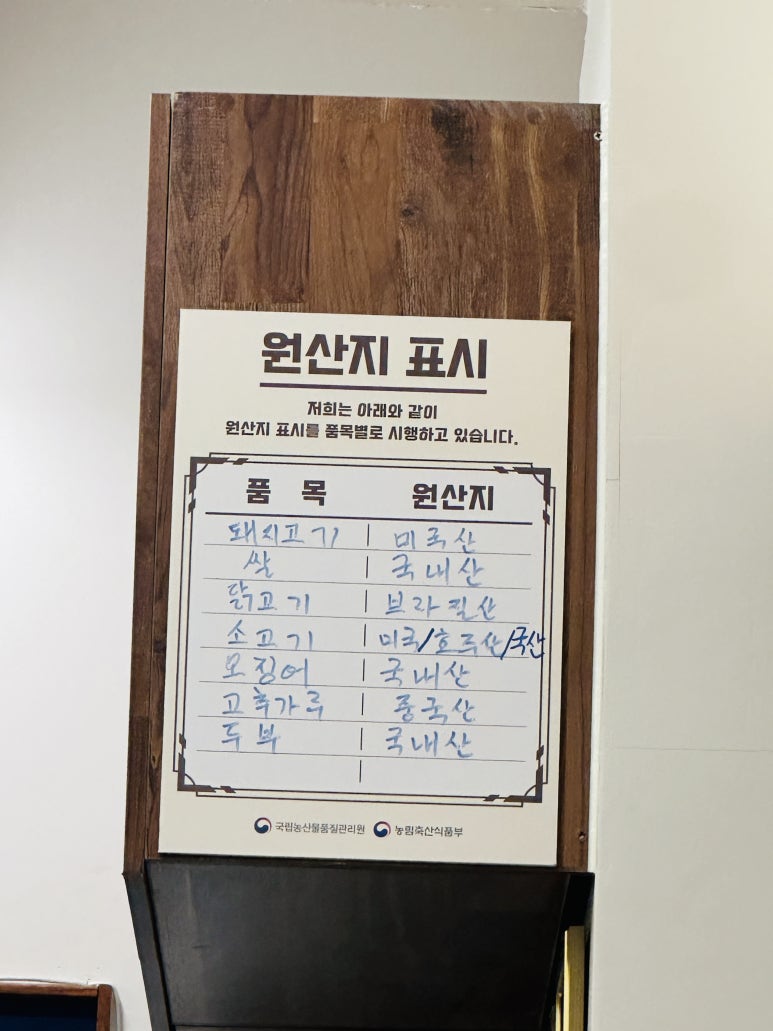 원산지 표시
저희는 아래와 같이
원산지 표시를 품목별로 시행하고 있습니다.
품 목 원산지
돼지고기 | 미국산
쌀 | 국내산
닭고기 | 브라질산
소고기 | 미국/호주산/국산
오징어 | 국내산
고춧가루 | 중국산
두부 | 국내산
|
국립농산물품질관리원 농림축산식품부